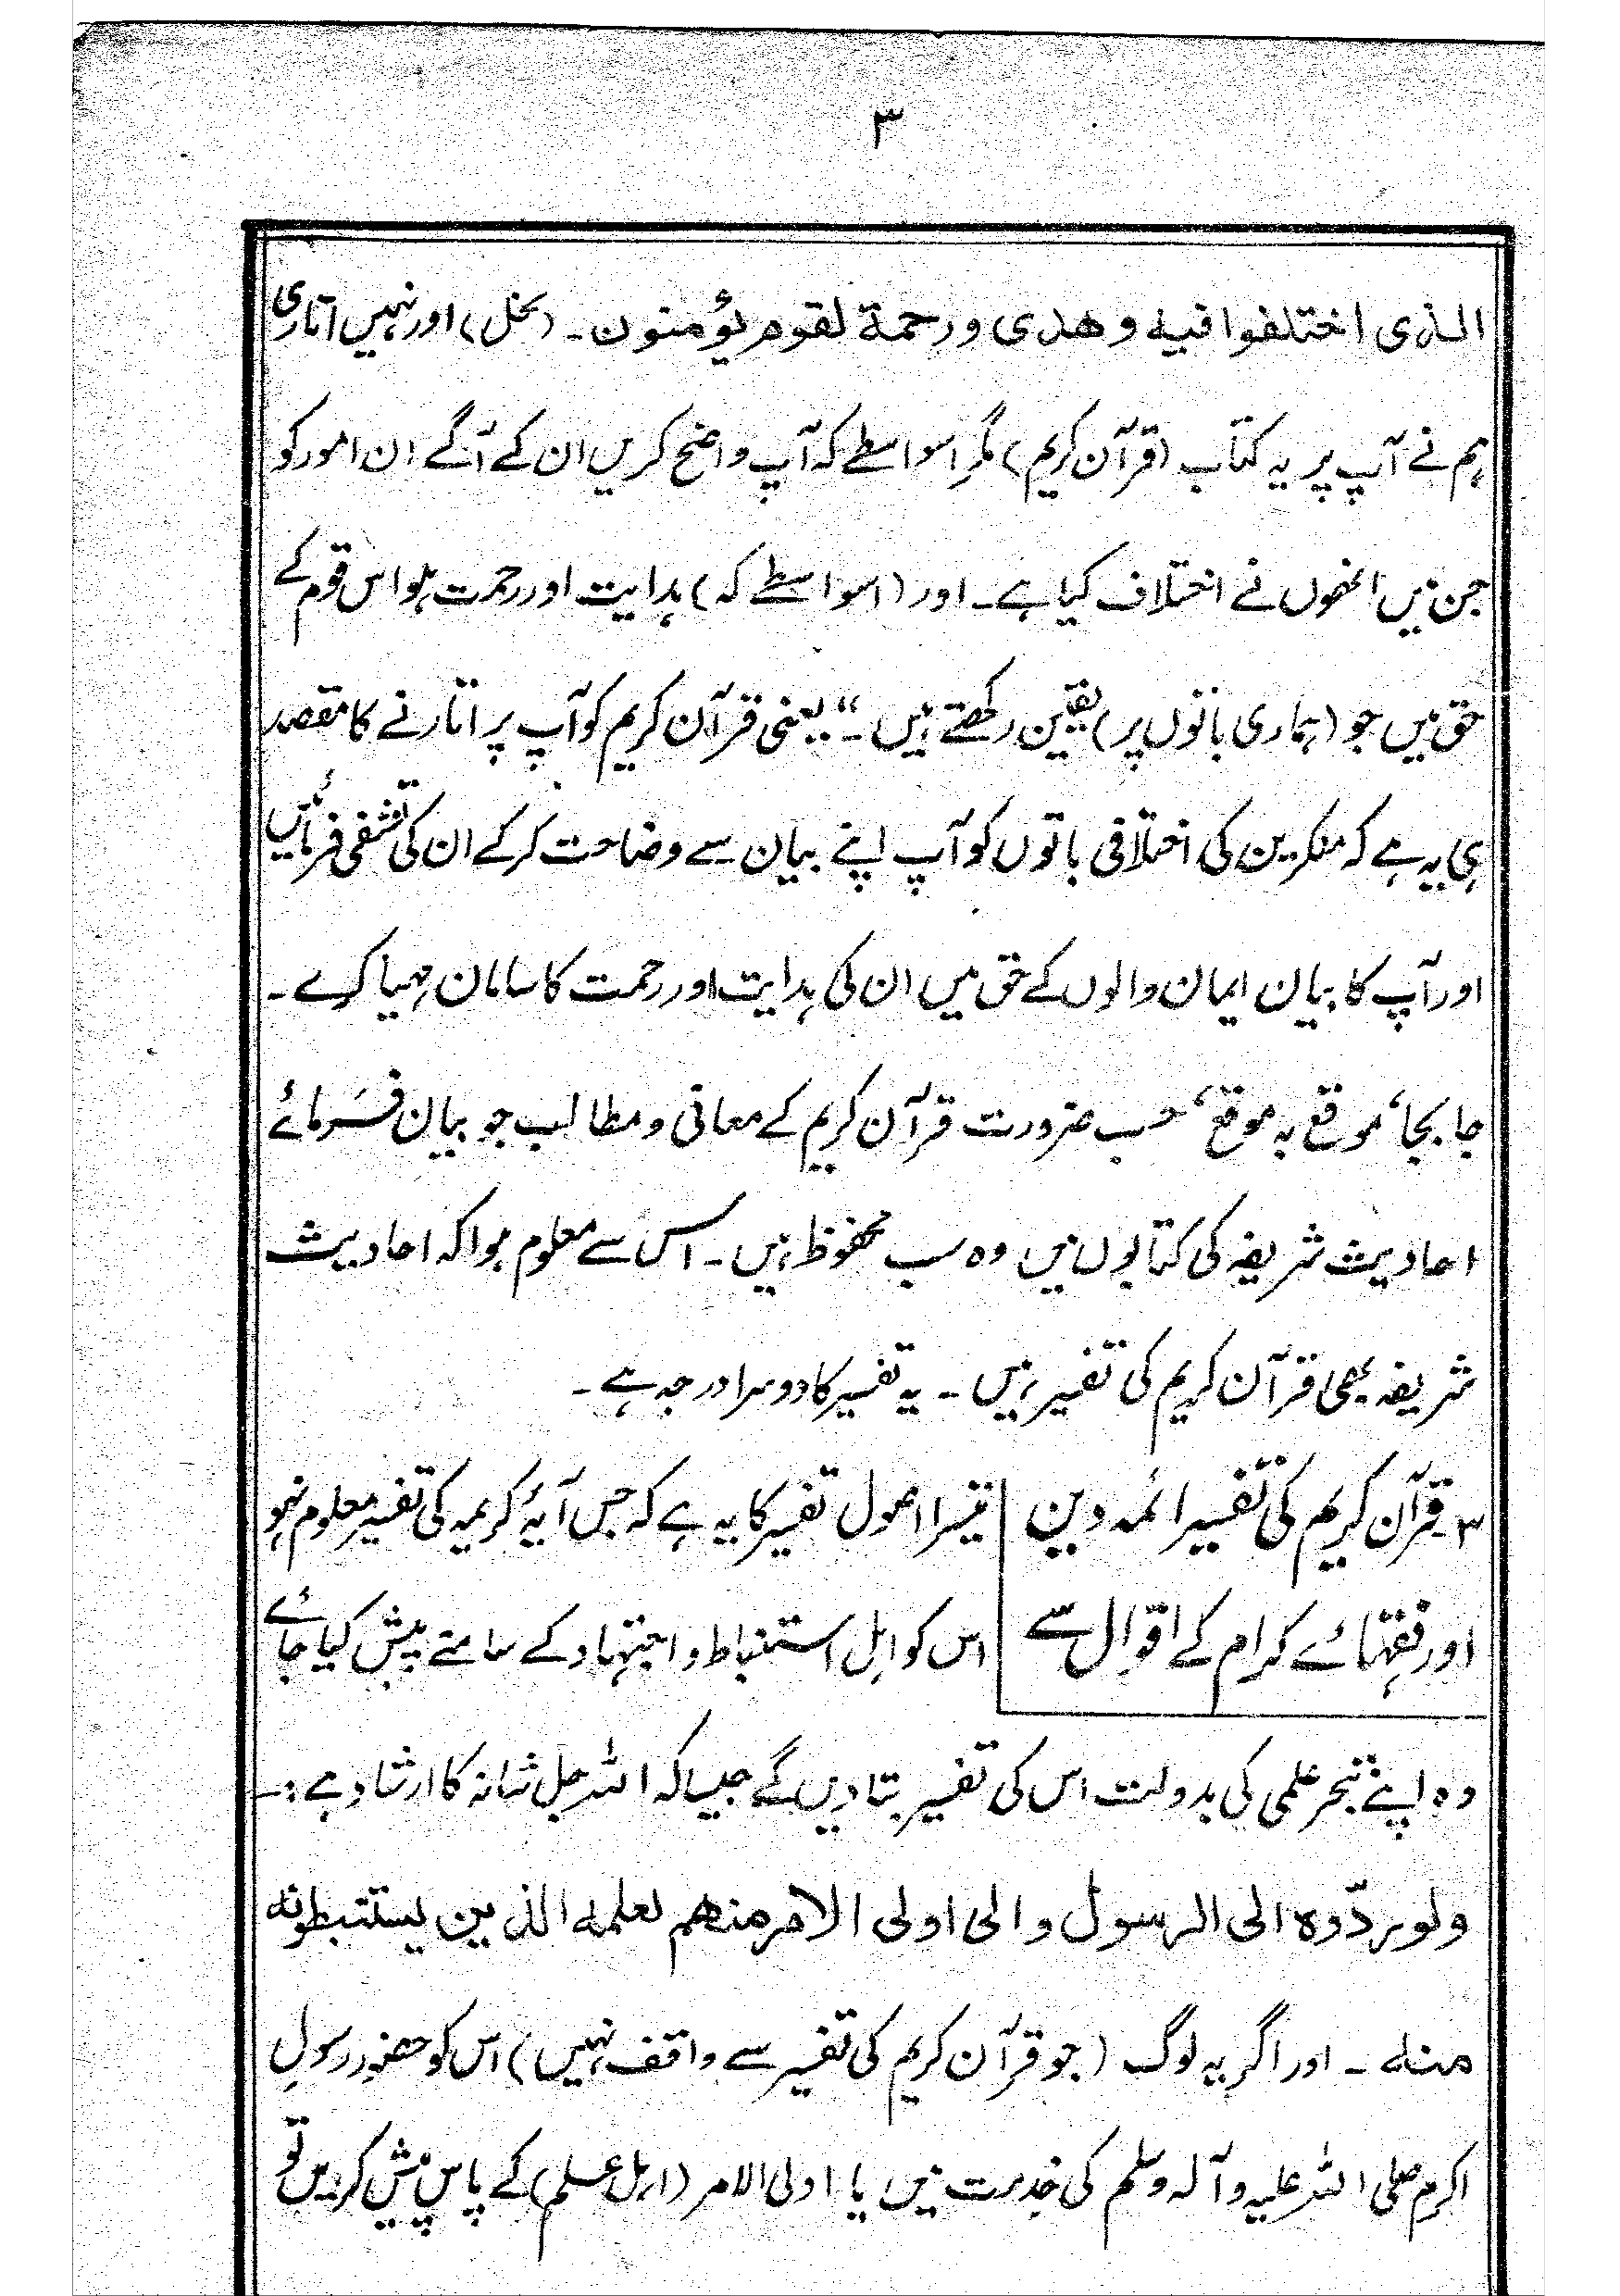 ۳
الذی اختلفوا فیه و هدی و رحمة لقوم یؤمنون۔ (نحل) اور نہیں اتاری
ہم نے آپ پر یہ کتاب (قرآن کریم) مگر اسواسطے کہ آپ واضح کریں ان کے آگے ان امور کو
جن میں انھوں نے اختلاف کیا ہے۔ اور (اسواسطے کہ) ہدایت اور رحمت ہو اس قوم کے
حق میں جو (ہماری باتوں پر) یقین رکھتے ہیں۔“ یعنی قرآن کریم کو آپ پر اتارنے کا مقصد
ہی یہ ہے کہ منکرین کی اختلافی باتوں کو آپ اپنے بیان سے وضاحت کرکے ان کی تشفی فرمائیں
اور آپ کا بیان ایمان والوں کے حق میں ان کی ہدایت اور رحمت کا سامان مہیا کرے۔
جابجا، موقع بہ موقع، حسب ضرورت قرآن کریم کے معانی و مطالب جو بیان فرمائے
احادیث شریفہ کی کتابوں میں وہ سب محفوظ ہیں۔ اس سے معلوم ہوا کہ احادیث
شریفہ بھی قرآن کریم کی تفسیر ہیں۔ یہ تفسیر کا دوسرا درجہ ہے۔
۳۔ قرآن کریم کی تفسیر ائمہ دین تیسرا اصول تفسیر کا یہ ہے کہ جس آیۂ کریمہ کی تفسیر معلوم نہو
اور فقہائے کرام کے اقوال سے اس کو اہل استنباط و اجتہاد کے سامنے پیش کیا جائے
وہ اپنے تبحر علمی کی بدولت اس کی تفسیر بتادیں گے جیسا کہ اللہ جل شانہ کا ارشاد ہے:۔
ولو ردّوه الی الرسول و الی اولی الامر منهم لعلمه الذین یستنبطونه
منه ۔ اور اگر یہ لوگ (جو قرآن کریم کی تفسیر سے واقف نہیں) اس کو حضور رسولِ
اکرم صلی اللہ علیہ و آلہ وسلم کی خدمت میں یا اولی الامر (اہل علم) کے پاس پیش کردیں تو